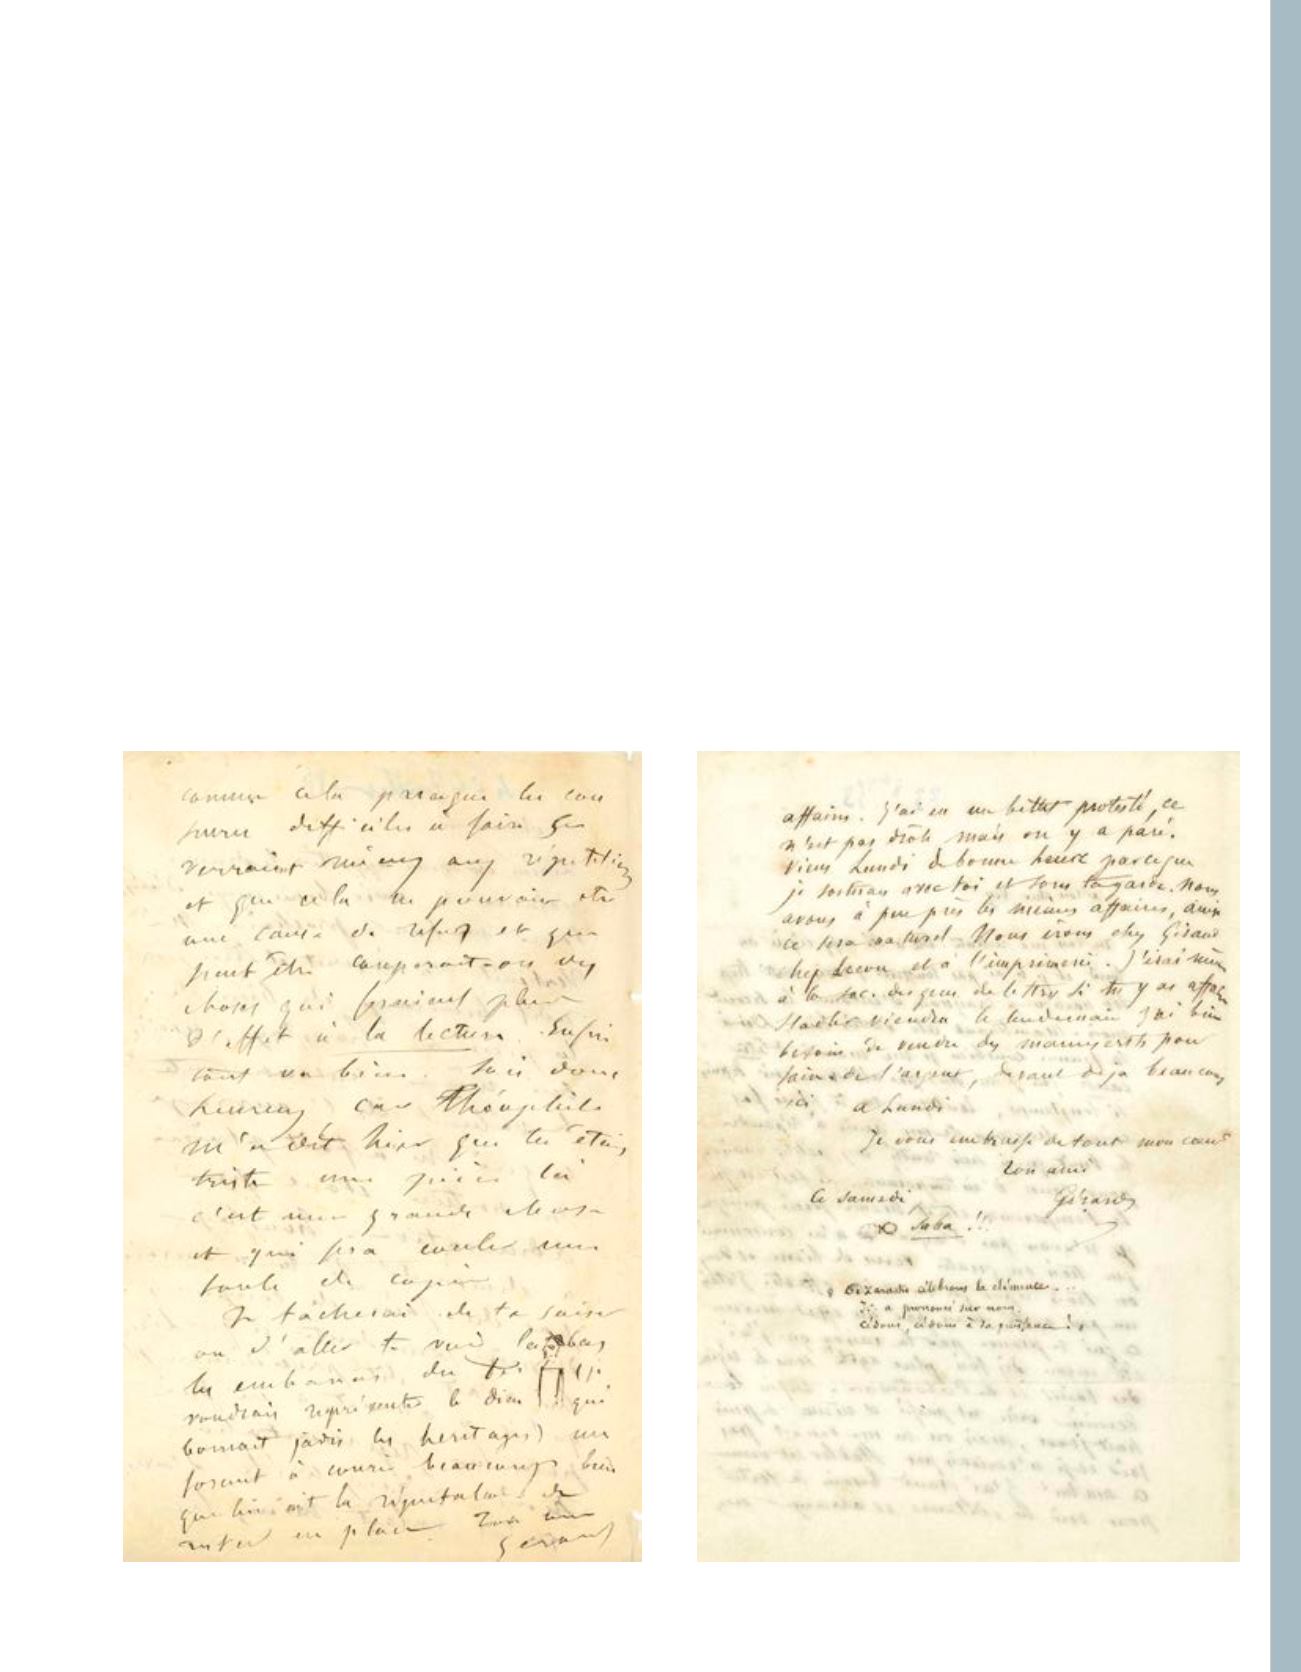 comme cela parceque les cou
pures difficiles à faire se
verraient mieux aux répétitions
et que cela ne pouvait être
une cause de refus et que
peut être couperait-on des
choses qui feraient plus
d'effet à la lecture. Enfin
tout va bien. Sois donc
heureux car Théophile
m'a dit hier que tu étais
triste une pièce lui
c'est une grande chose
et qui fera couler une
foule de copie
Je tâcherai de te saisir
ou d'aller te voir là bas
les embarras du
voudrais représenter le dieu qui
bornait jadis les heritages) me
forcent à courir beaucoup bien
que lui ait la réputation de
rester en place. Ton ami
Gérard
affaires. J'ai eu un billet protesté, ce
n'est pas drôle mais on y a paré.
Viens Lundi de bonne heure parceque
je sortirai avec toi et sous ta garde. Nous
avons à peu près les mêmes affaires, ainsi
ce sera naturel Nous irons chez Giraud
chez Lecou et à l'imprimerie. J'irai même
à la soc. des gens de lettres si tu y as affaire
Stadler viendra le lendemain J'ai bien
besoin de vendre des manuscrits pour
faire de l'argent, devant déja beaucoup
ici a Lundi
Je vous embrasse de tout mon cœur
Ton ami
Ce samedi Gérard
Saba !!.
célébrons la clémence...
Il a prononcé sur nous.
cédons, cédons à sa puissance !